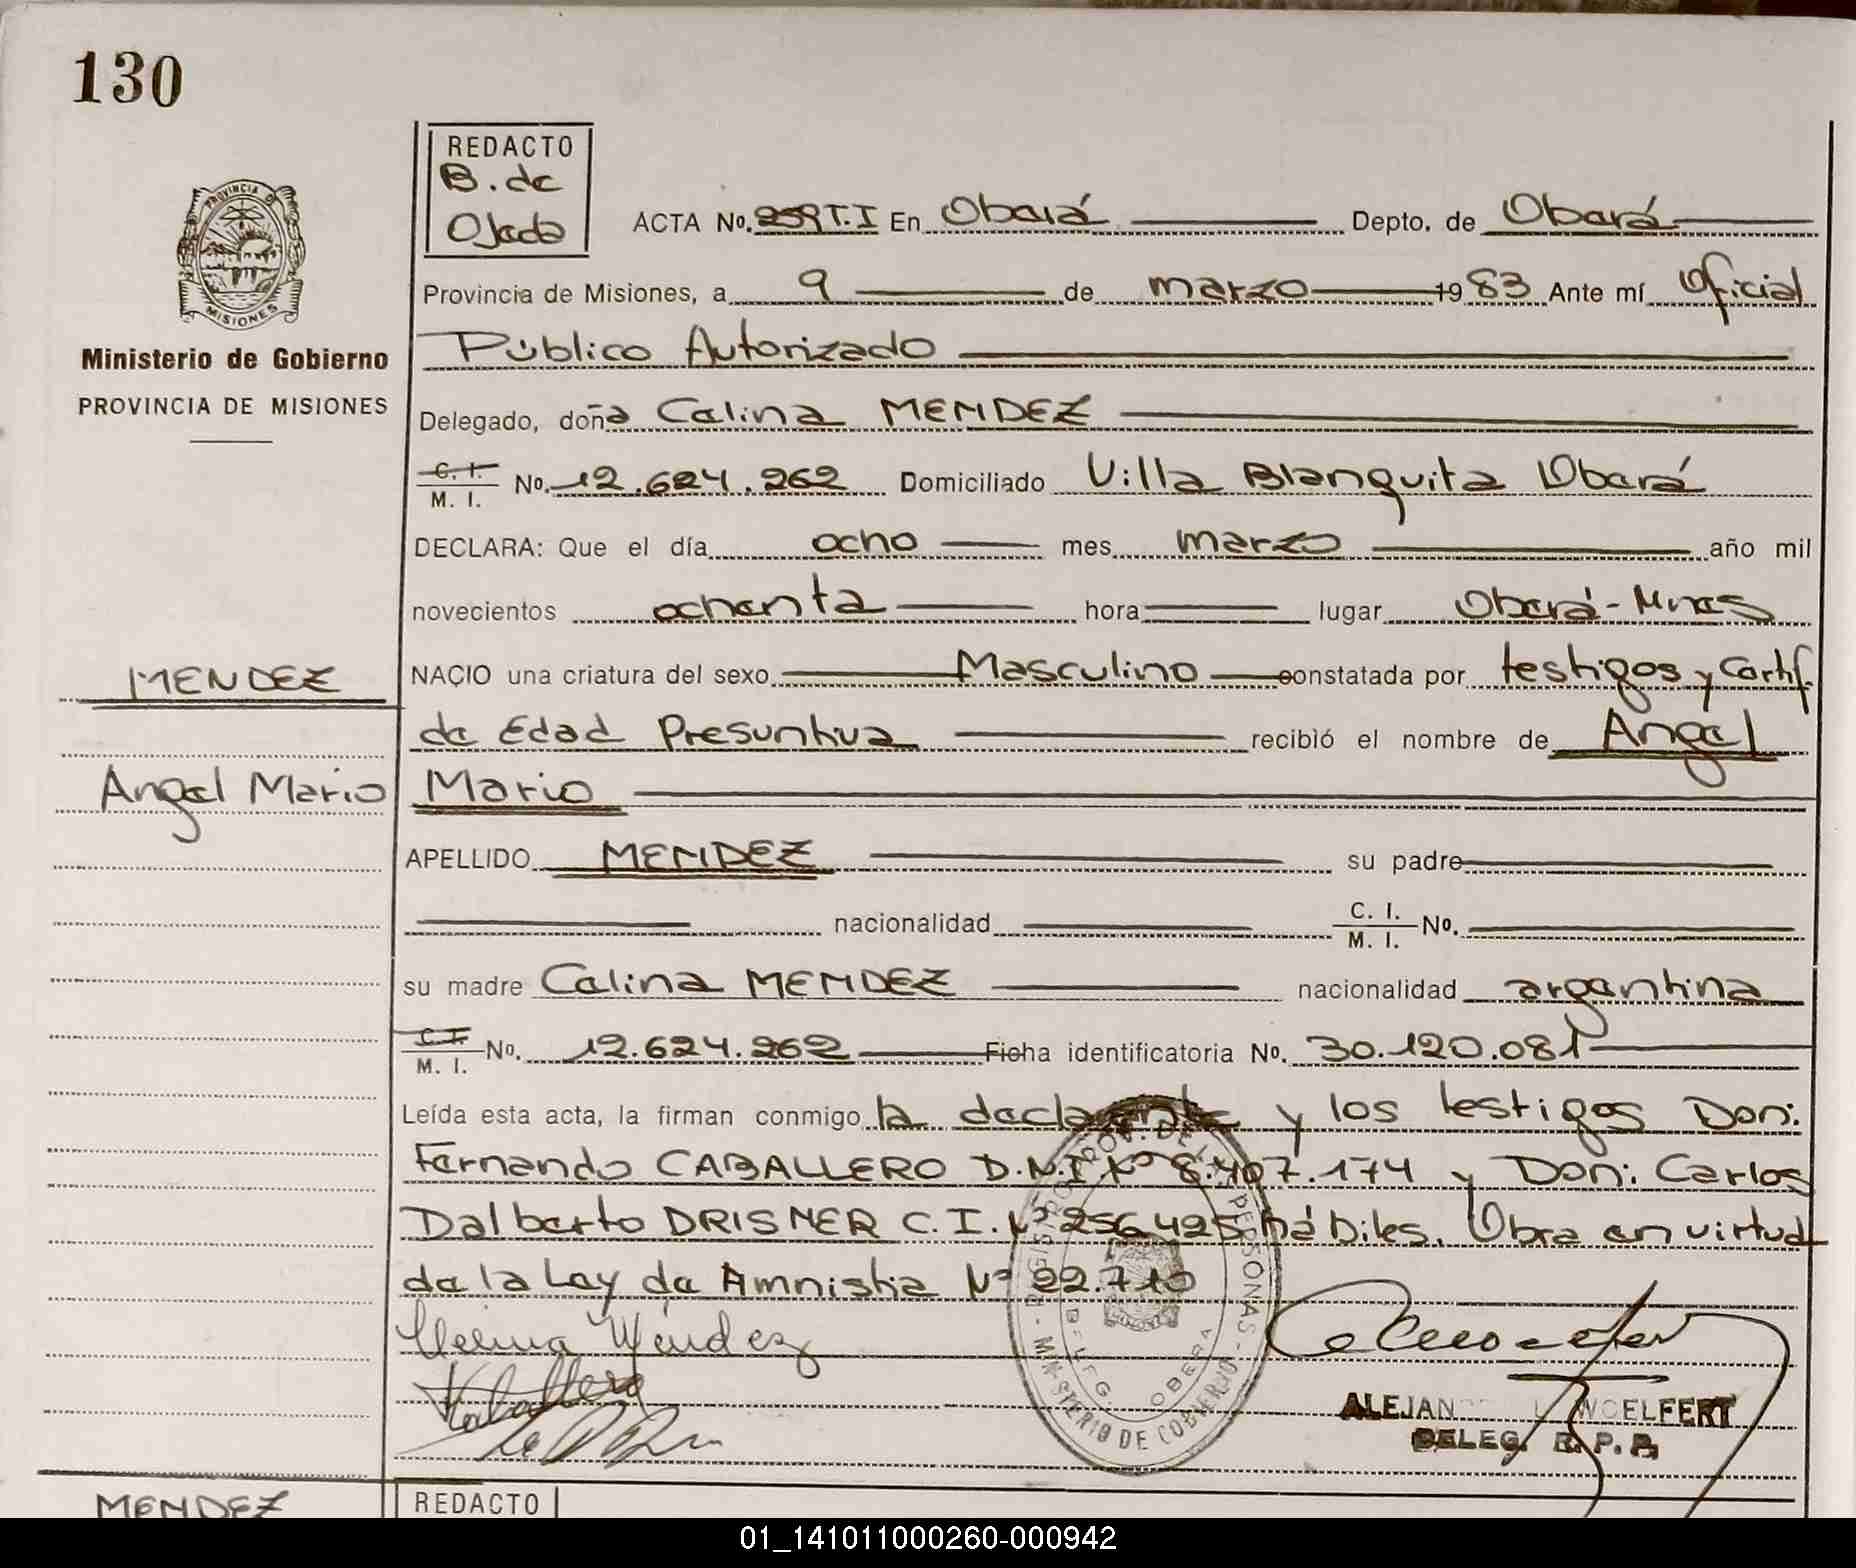 130
REDACTO
B. de
Ojeda
ACTA No. 259 T.I En Oberá Depto. de Oberá
Provincia de Misiones, a 9 de marzo 1983 Ante mí Oficial
Público Autorizado
PROVINCIA DE
MISIONES
Ministerio de Gobierno
PROVINCIA DE MISIONES
Delegado, doña Celina MENDEZ
C. I.
M. I. No. 12.624.262 Domiciliado Villa Blanquita Oberá
DECLARA: Que el día ocho mes marzo año mil
novecientos ochenta hora lugar Oberá-Mnes
MENDEZ
NACIO una criatura del sexo Masculino constatada por testigos y Certif.
de Edad Presuntiva recibió el nombre de Angel
Angel Mario
Mario
APELLIDO MENDEZ su padre
nacionalidad C. I.
M. I. No.
su madre Celina MENDEZ nacionalidad argentina
C. I.
M. I. No. 12.624.262 Ficha identificatoria No. 30.120.081
Leída esta acta, la firman conmigo la declarante y los testigos Don:
Fernando CABALLERO D.N.I Nº 8.407.174 y Don: Carlos
Dalberto DRISNER C.I. Nº 256.425 hábiles. Obra en virtud
de la Ley de Amnistia Nº 22.710
Celina Méndez
MINISTERIO DE GOBIERNO
DELEG. OBERA
WOELFERT
DELEG. R. P. P.
MENDEZ
REDACTO
01_141011000260-000942